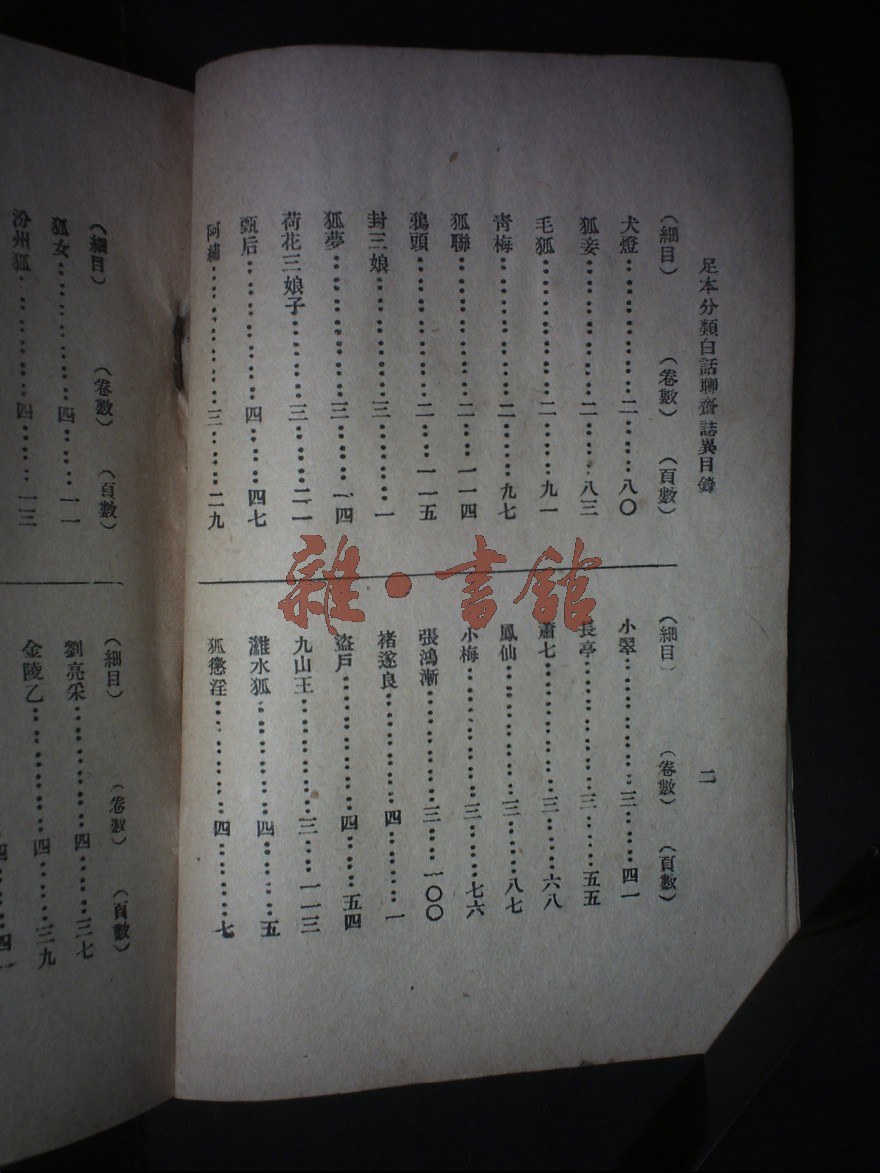 足本分類白話聊齋誌異目錄 二
(細目) (卷數) (頁數)
犬燈……………………二……八〇
狐妾……………………二……八三
毛狐……………………二……九一
青梅……………………二……九七
狐聯……………………二……一一四
鴉頭……………………二……一一五
封三娘…………………三……一
狐夢……………………三……一四
荷花三娘子……………三……二一
甄后……………………四……四七
阿繡……………………三……二九
(細目) (卷數) (頁數)
小翠……………………三……四一
長亭……………………三……五五
蕭七……………………三……六八
鳳仙……………………三……八七
小梅……………………三……七六
張鴻漸…………………三……一〇〇
褚遂良…………………四……一
盜戶……………………四……五四
九山王…………………三……一一三
濰水狐…………………四……五
狐懲淫…………………四……七
(細目) (卷數) (頁數)
狐女……………………四……一一
汾州狐…………………四……一三
(細目) (卷數) (頁數)
劉亮采…………………四……三七
金陵乙…………………四……三九
雜·書館